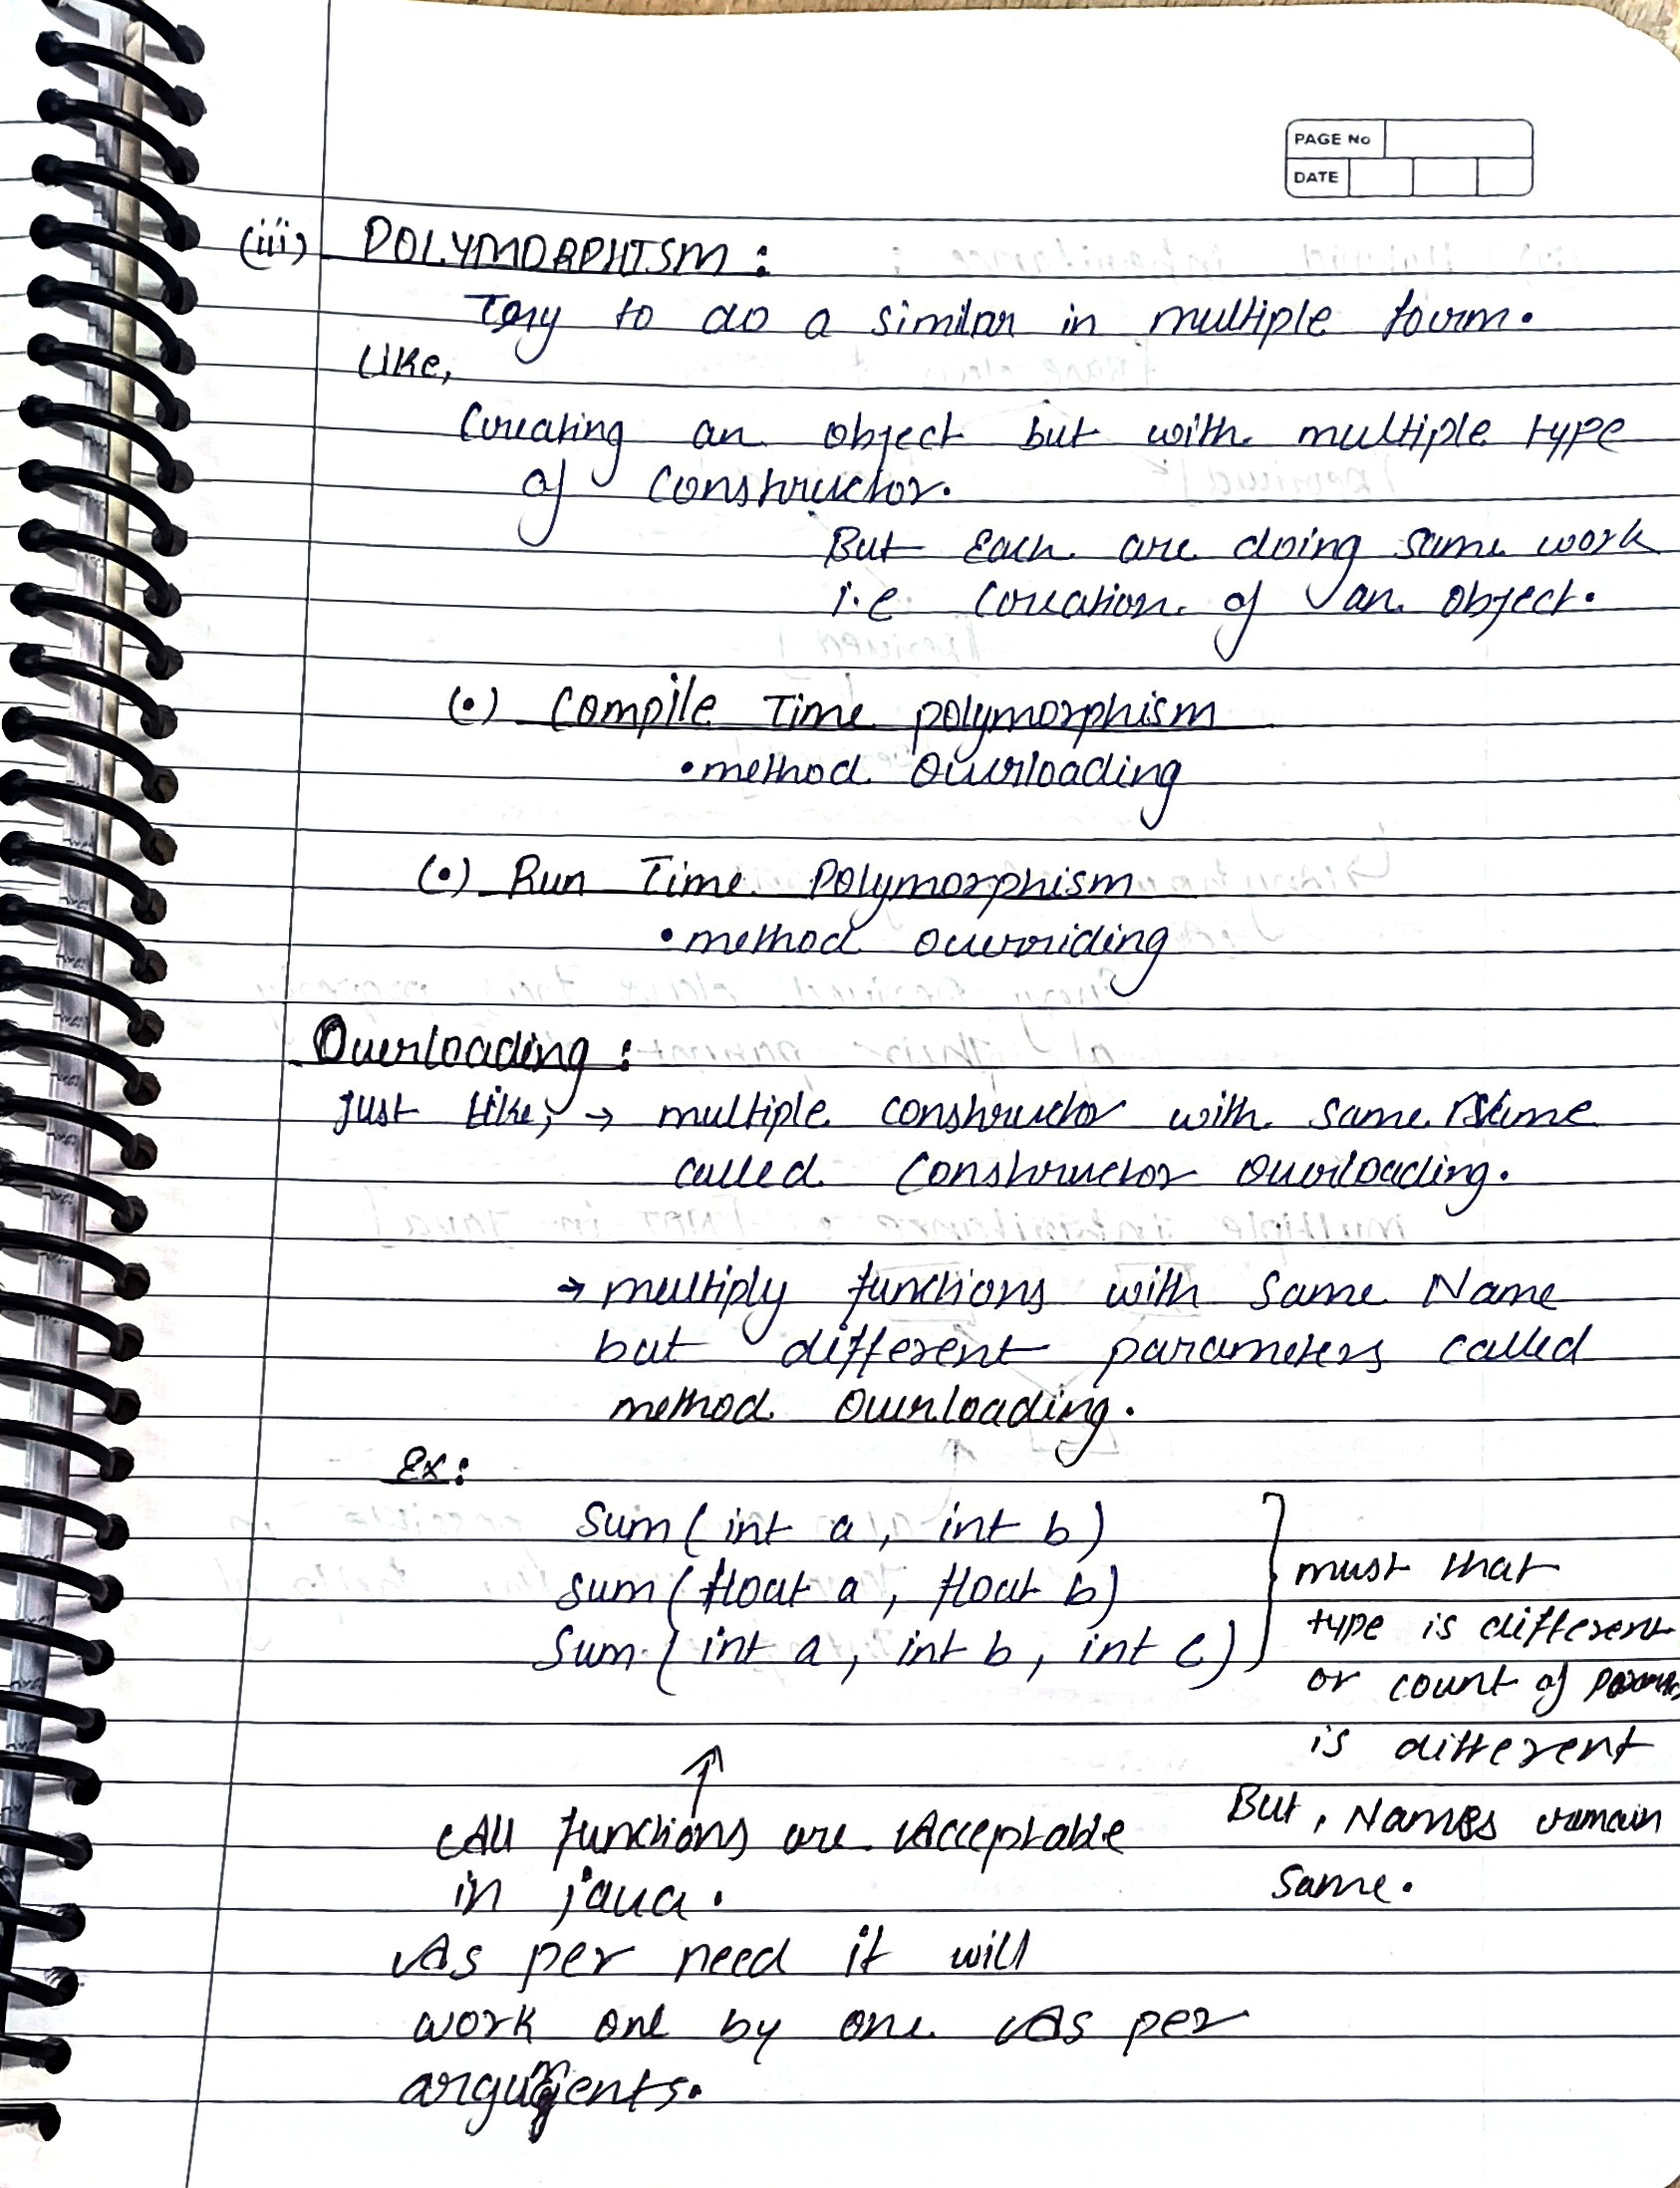 PAGE No
DATE
(iii) POLYMORPHISM :
Try to do a similar in multiple form.
Like,
Creating an object but with multiple type
of constructor.
But Each are doing same work
i.e creation of an object.
(•) Compile Time polymorphism
• method overloading
(•) Run Time Polymorphism
• method overriding
Overloading :
Just like, → multiple constructor with same Name
called constructor overloading.
→ multiply functions with same Name
but different parameters called
method overloading.
Ex:
Sum ( int a , int b )
sum ( float a , float b )
Sum ( int a , int b , int c )
must that
type is different
or count of
is different
But, Names remain
same.
↑
All functions are Acceptable
in java.
As per need it will
work one by one As per
arguments.